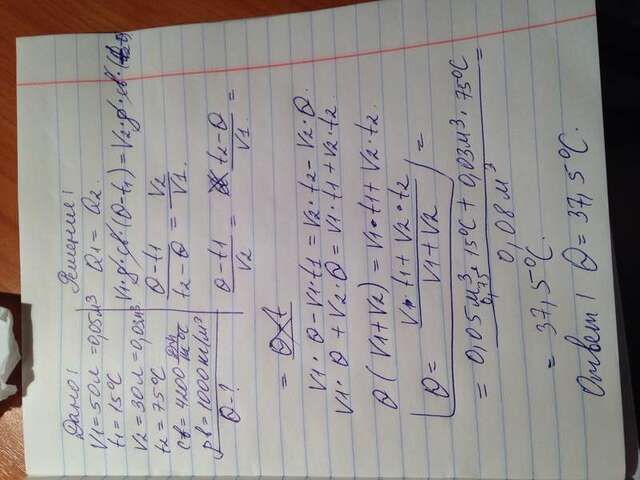 Дано!
V1=50л=0,05м³
t1=15°C
V2=30л=0,03м³
t2=75°C
cв=4200 Дж/кг°C
ρв=1000кг/м³
Θ-?
Решение!
Q1=Q2.
V1·ρ·cв·(Θ-t1)=V2·ρ·cв·(t2-Θ)
Θ-t1/t2-Θ=V2/V1.
Θ-t1/V2=t2-Θ/V1=
=Θ-t
V1·Θ-V1·t1=V2·t2-V2·Θ.
V1·Θ+V2·Θ=V1·t1+V2·t2.
Θ(V1+V2)=V1·t1+V2·t2.
Θ=V1·t1+V2·t2/V1+V2=
=0,05м³·15°C+0,03м³·75°C/0,08м³=
0,75
=37,5°C.
Ответ! Θ=37,5°C.